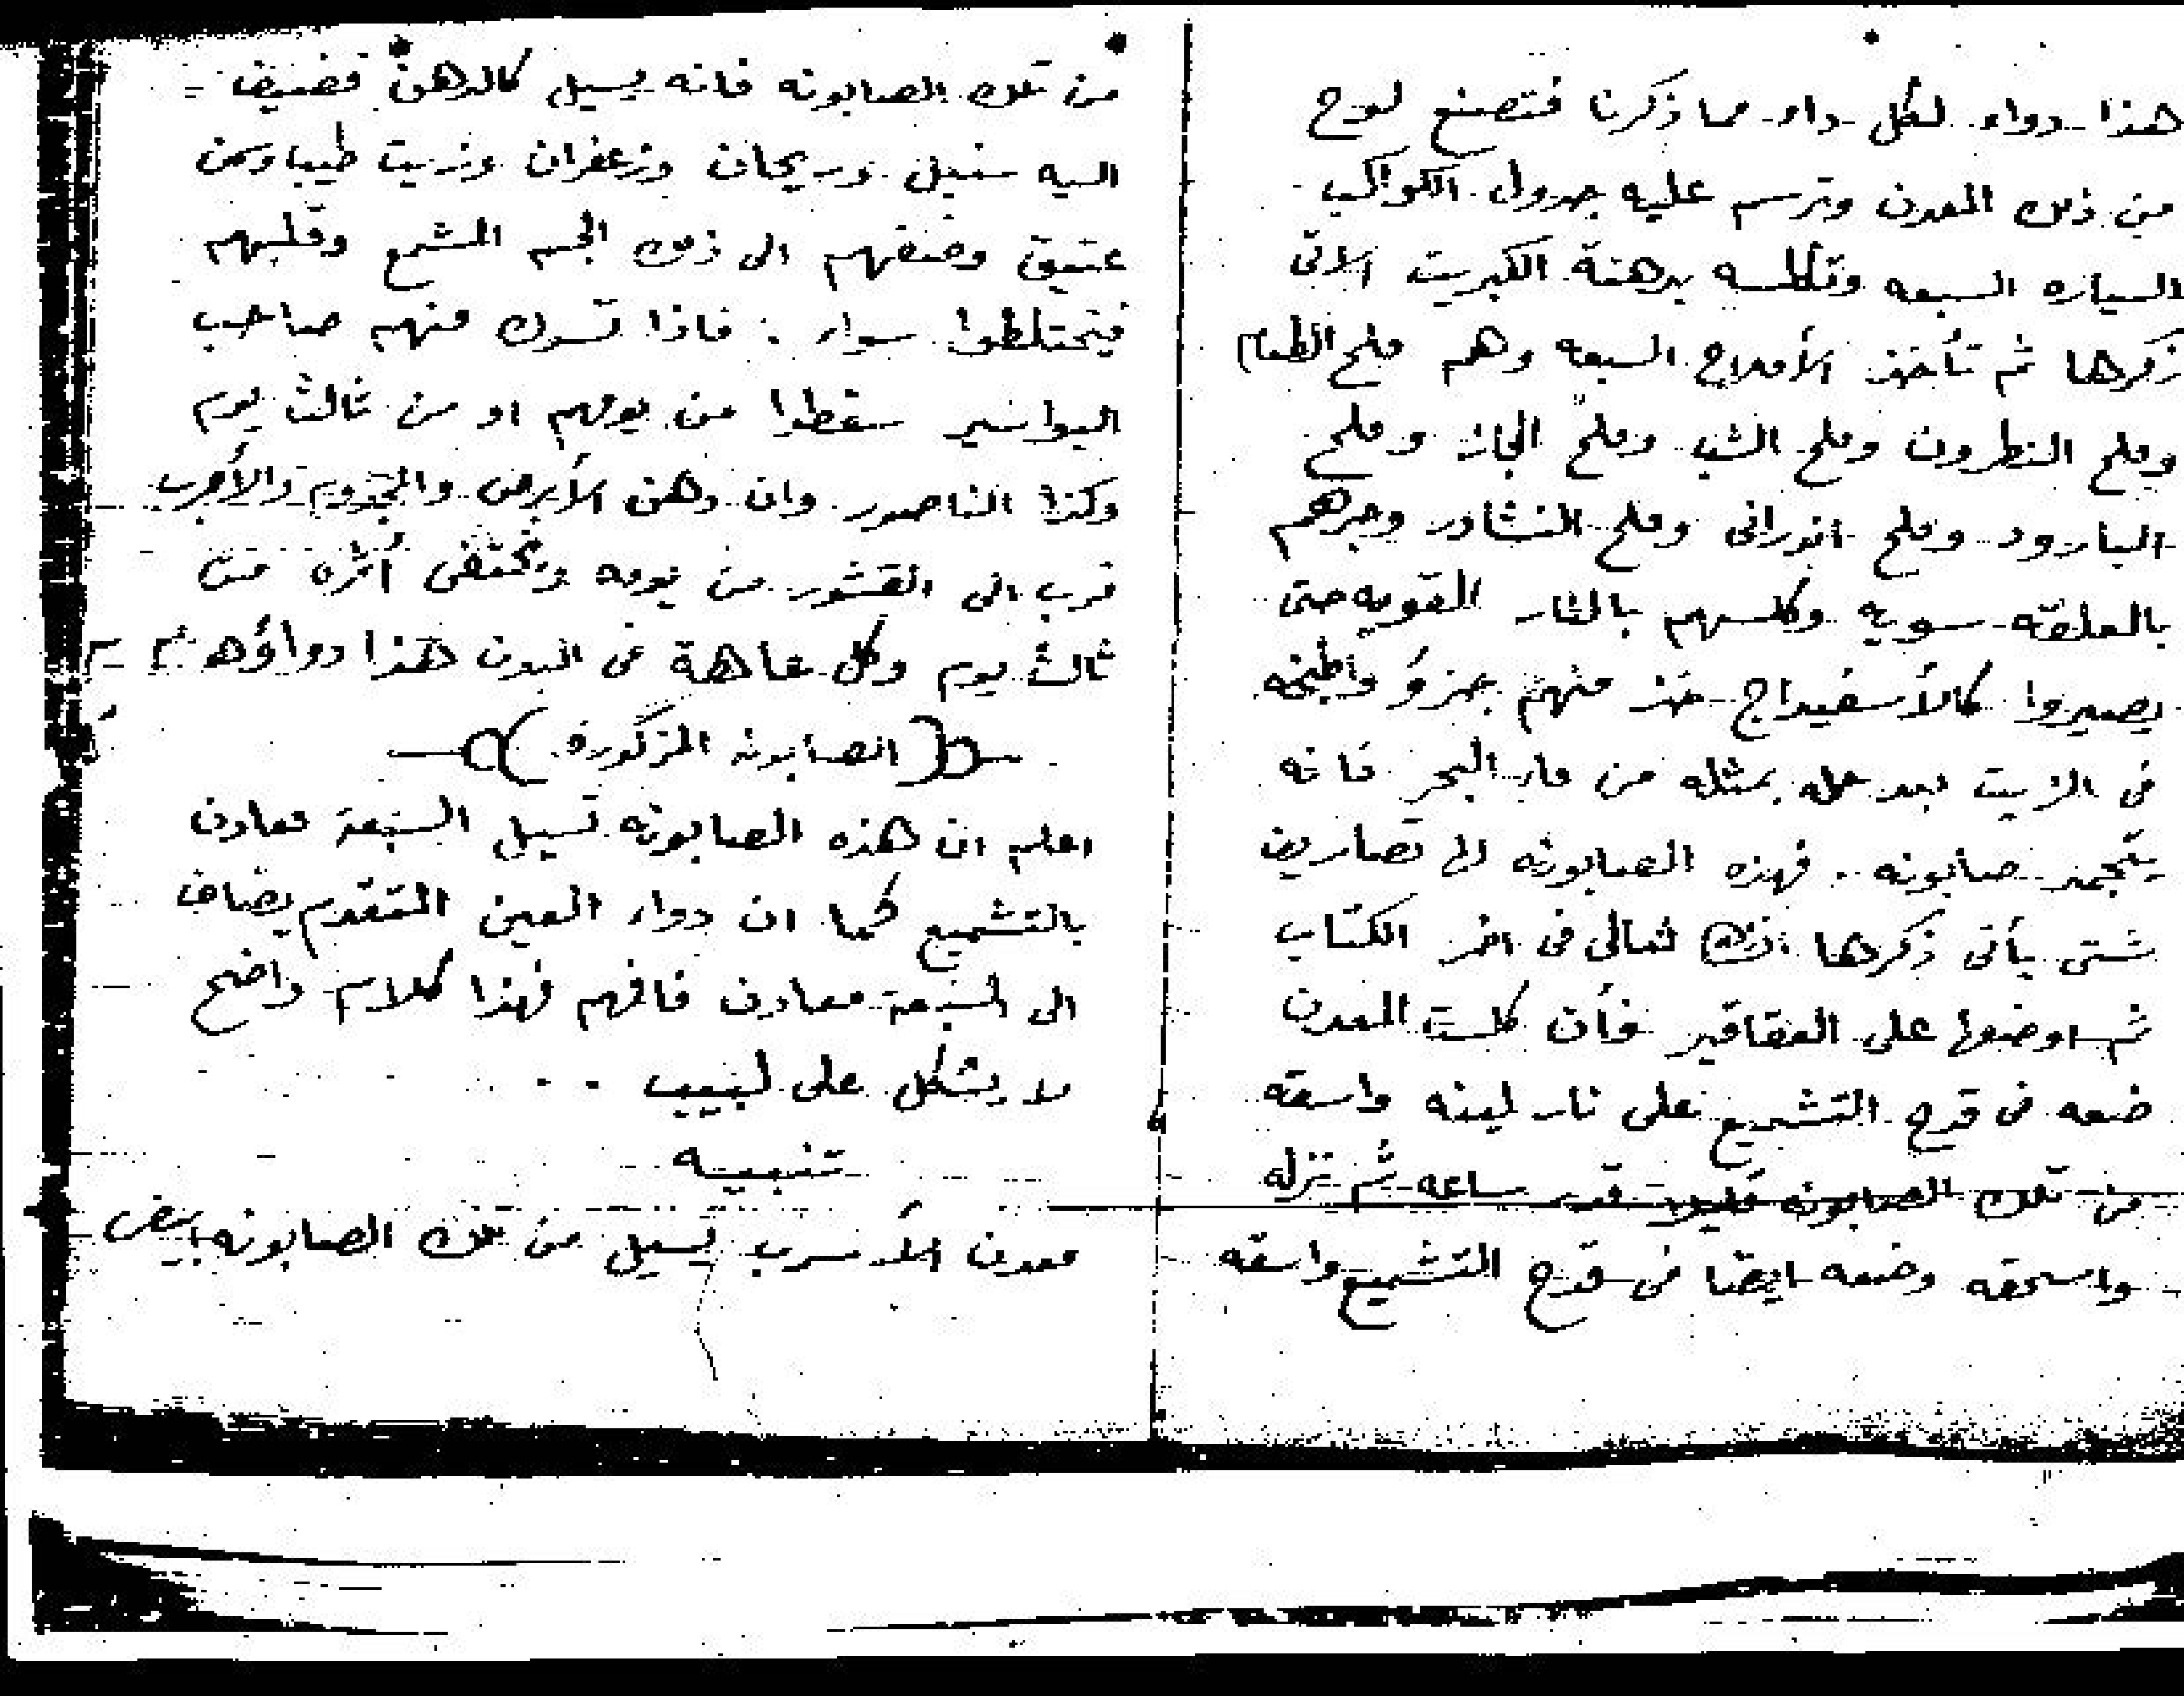 هذا دواء لكل داء مما ذكرنا فتصنع لوح
من ذلك المعدن وترسم عليه جدول الكواكب
السياره السبعه وتكلسه بدهنة الكبريت الاتى
ذكرها ثم تأخذ الأملاح السبعه وهم ملح الطعام
وملح النطرون وملح الشب وملح الجاز وملح
البارود وملح اندرانى وملح النشادر وجرهم
بالعلقه سويه وكلسهم بالنار القويه حتى
يصيروا كالأسفيداج خذ منهم جزؤ واطبخه
فى الزيت بعد حله بمثله من ماء البحر فانه
يتجمد صابونه . فهذه الصابونه لها تصارين
شتى يأتى ذكرها انشاء الله تعالى فى اخر الكتاب
ثم اوضعها على العقاقير فأن كلست المعدن
ضعه فى قدح التشميع على نار لينه واسقه
من تلك الصابونه قليلا قدر ساعه ثم تنزله
واسحقه وضعه ايضا فى قدح التشميع واسقه
من تلك الصابونه فانه يسيل كالدهن فضيف
اليه سنبل وريحان وزعفران وزيت طيب وسمن
عتيق وضفهم الى ذلك الجسم المشمع وقلبهم
فيختلطوا سواء . فاذا تسوك منهم صاحب
البواسير سقطوا من يومهم او من ثالث يوم
وكذا الناصور وان دهن الأبرص والمجذوم والأجرب
قرب الى القشور من يومه ويختفى أثره من
ثالث يوم وكل عاهة فى البدن هذا دواؤها
(الصابونه المذكوره)
اعلم ان هذه الصابونه تسيل السبعة معادن
بالتشميع كما ان دواء العين المتقدم يضاف
الى السبعة معادن فافهم فهذا كلام واضح
لا يشكل على لبيب . .
تنبيه
معدن الأسرب يسيل من تلك الصابونه ابيض